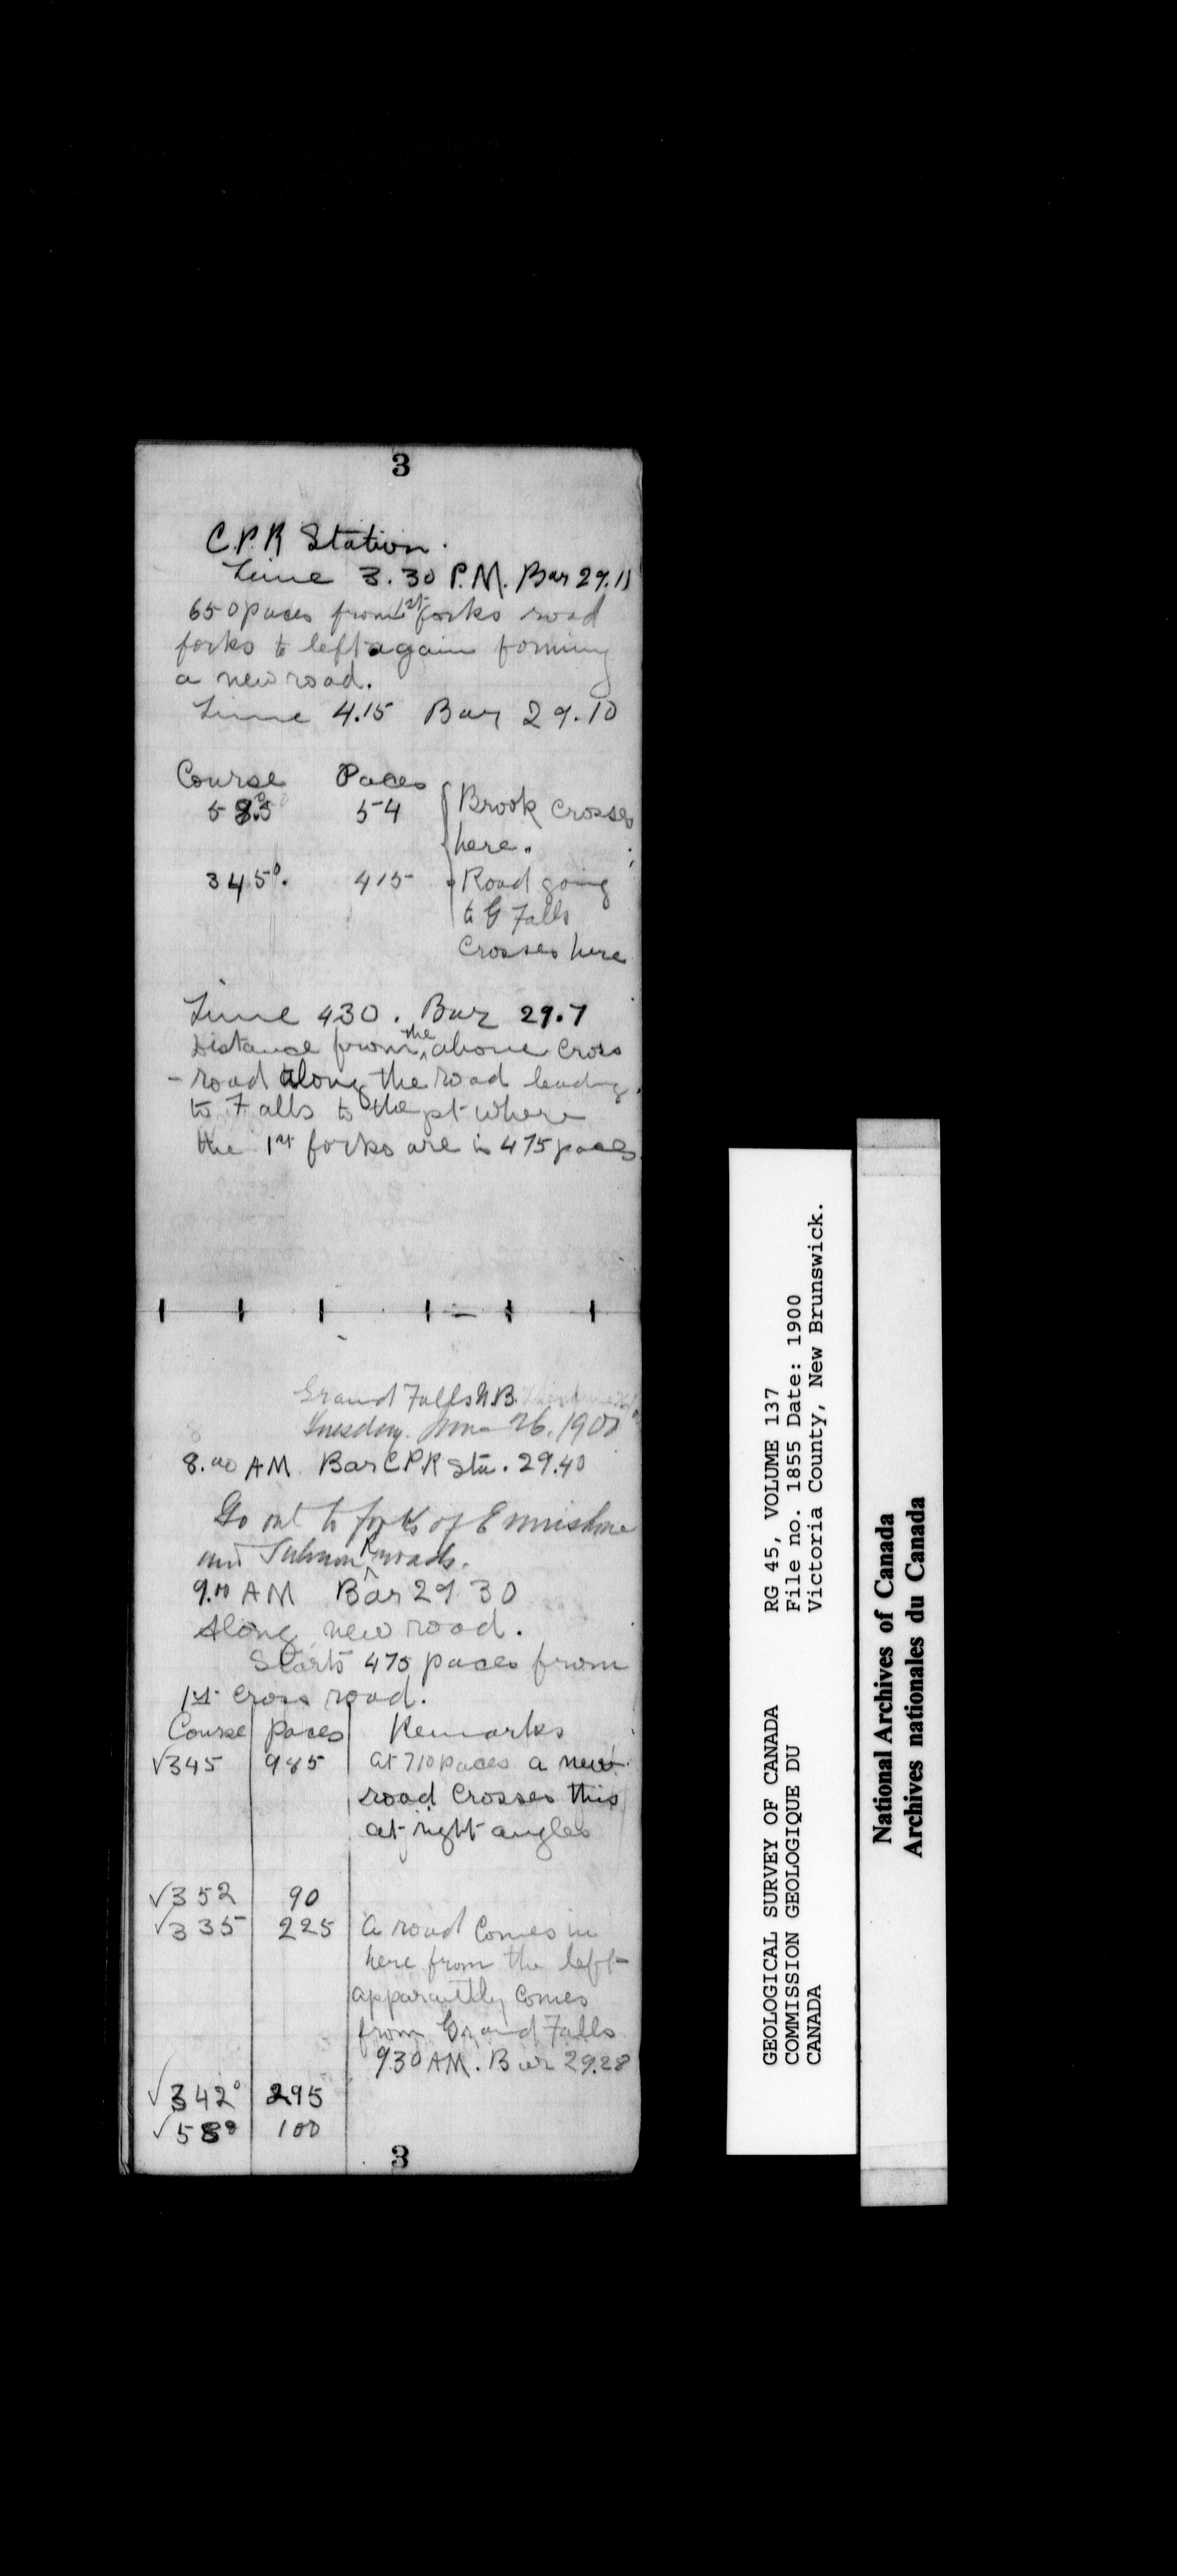 3
C.P.R Station.
Time 3.30 P.M. Bar 29.11
650 paces from 1st forks road
forks to left again forming
a new road.
Time 4.15 Bar 29.10
Course Paces
58.5° 54 Brook Crosses
here.
345°. 415 Road going
to G Falls
Crosses here
Time 430. Bar 29.7
Distance from the above Cross
- road along the road leading
to Falls to the pt where
the 1st forks are is 475 paces
Grand Falls N.B.
Tuesday. June 26. 1900
8.00 AM Bar C.P.R Sta. 29.40
Go out to forks of Ennishore
and Salmon R roads.
9.00 AM Bar 29.30
Along new road.
Starts 475 paces from
1st Cross road.
Course Paces Remarks
√345 985 at 710 paces a new
road Crosses this
at right angles
√352 90
√335 225 A road Comes in
here from the left
apparently Comes
from Grand Falls
930 AM. Bar 29.28
√342° 295
√58° 100
3
GEOLOGICAL SURVEY OF CANADA RG 45, VOLUME 137
COMMISSION GEOLOGIQUE DU File no. 1855 Date: 1900
CANADA Victoria County, New Brunswick.
National Archives of Canada
Archives nationales du Canada